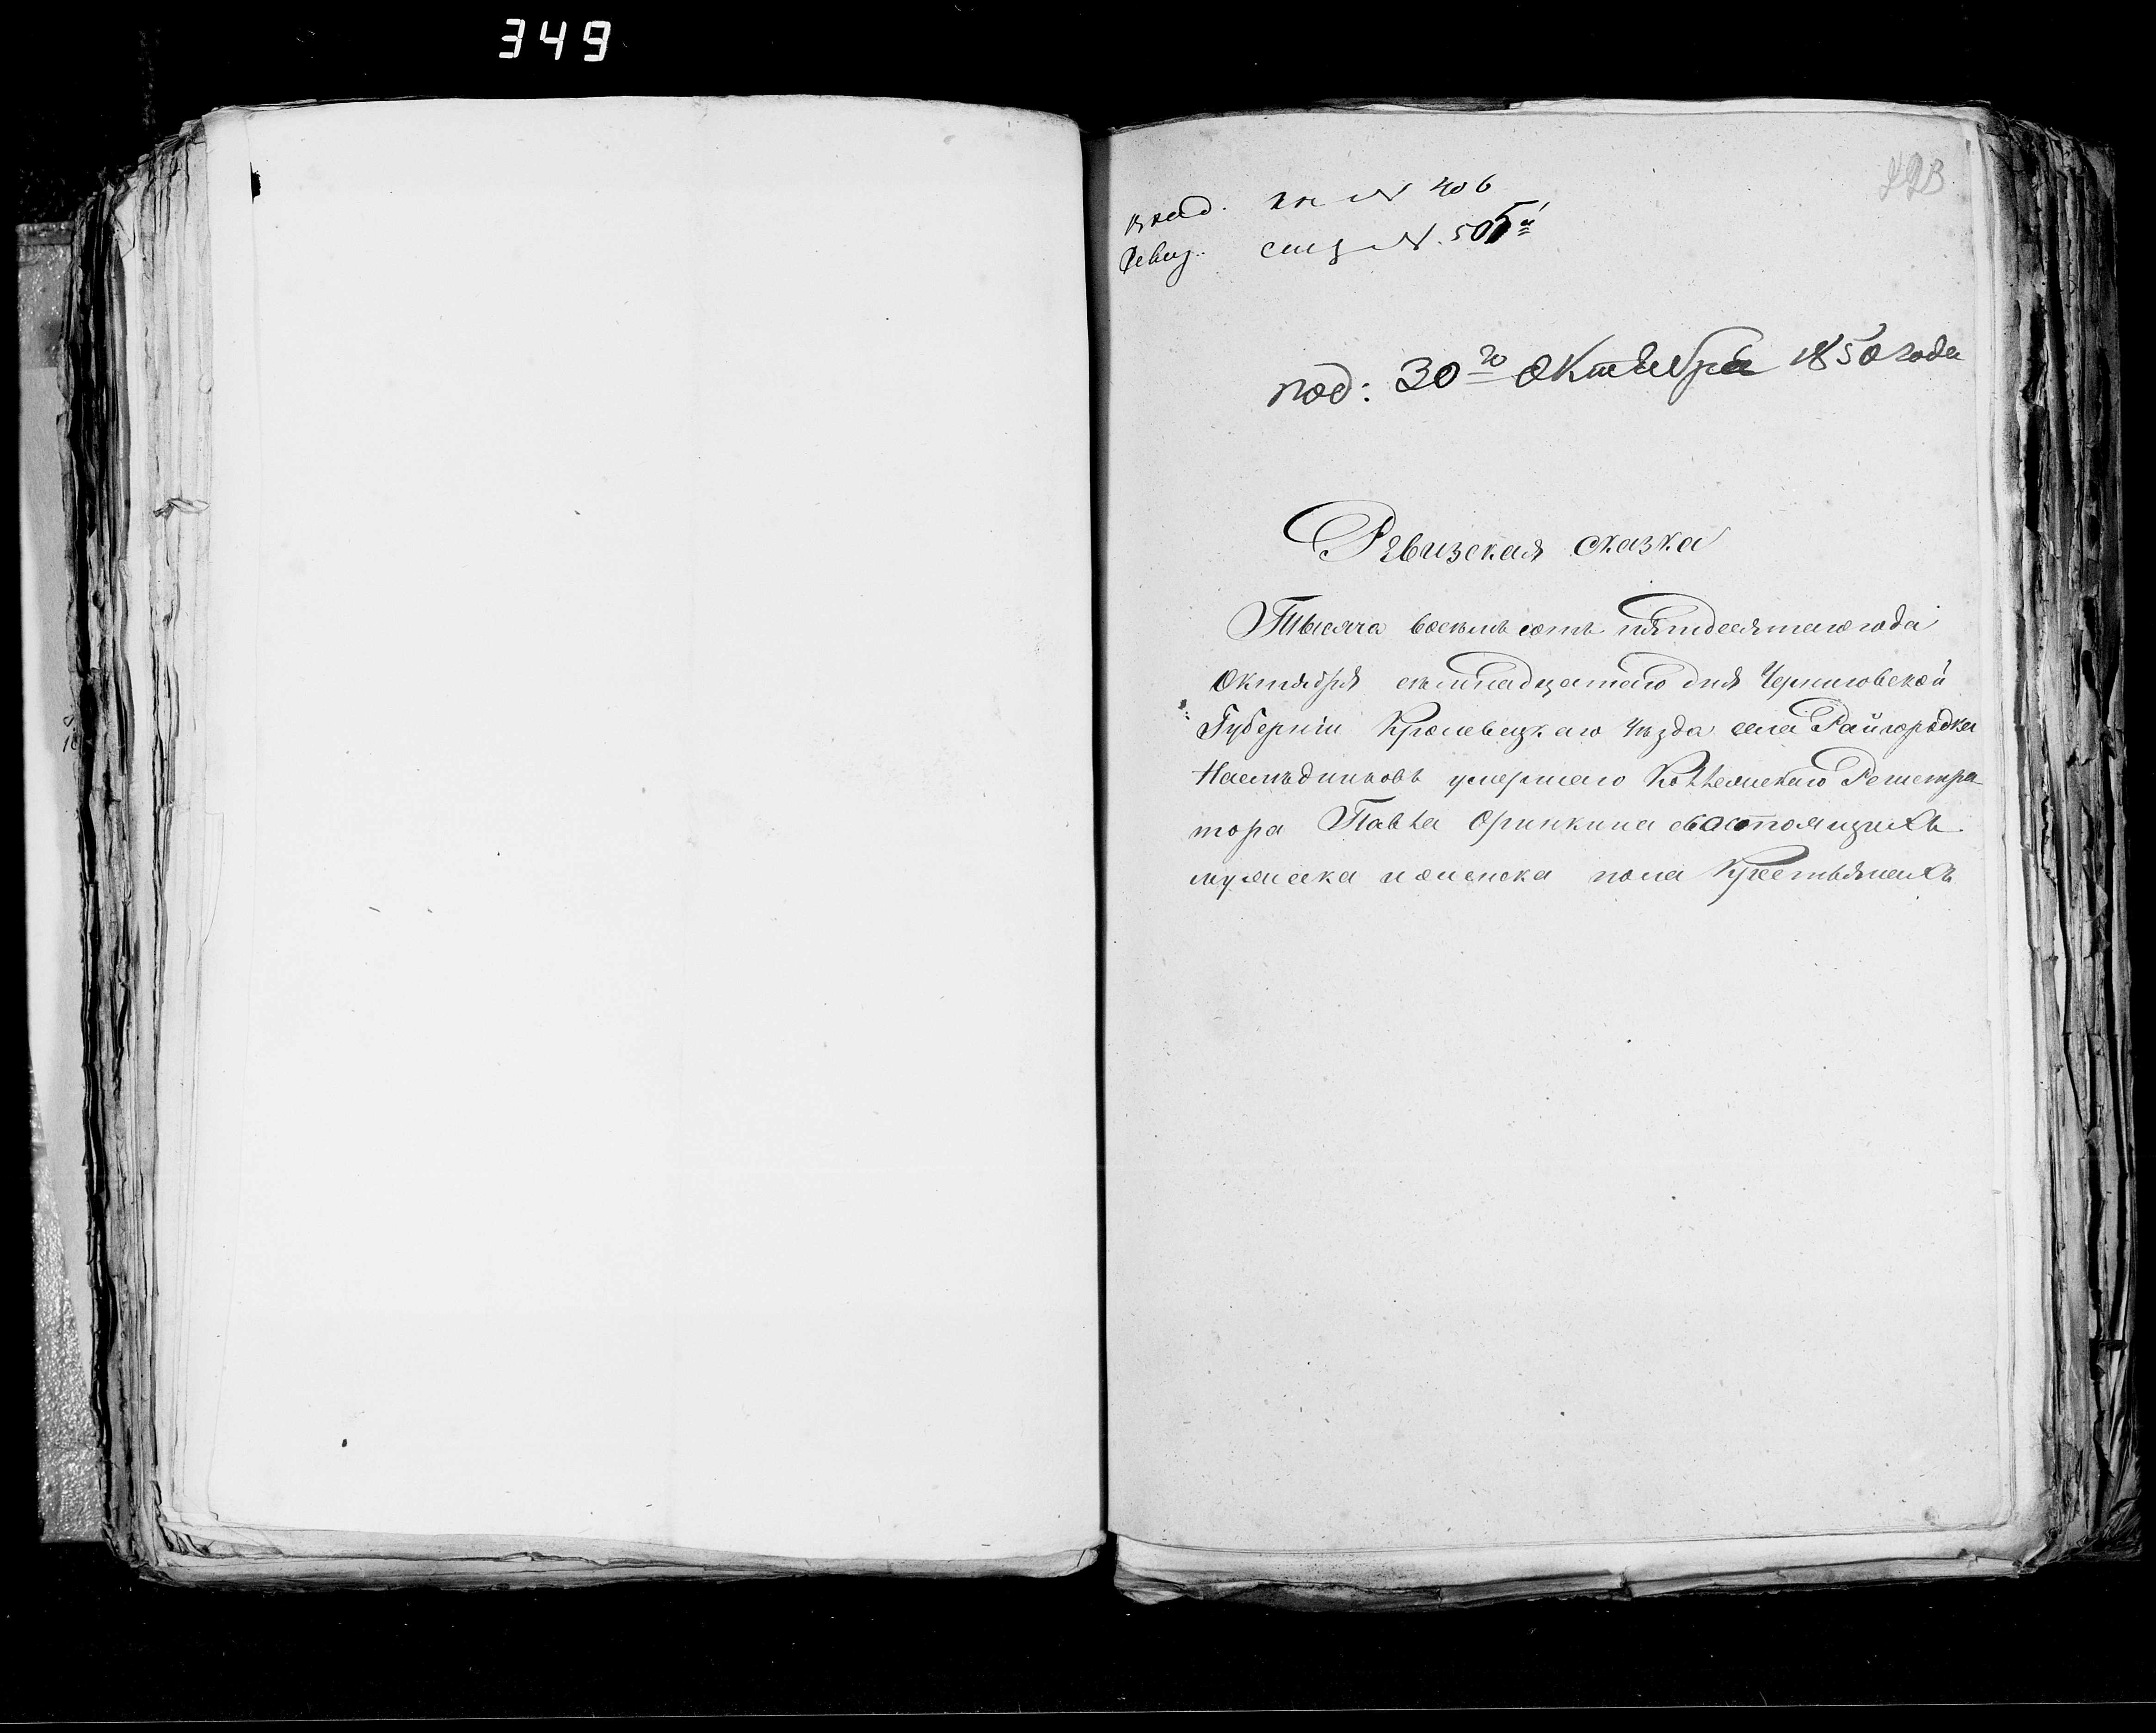 349
вход. кн № 406
Ревиз. сказ №. 505й
под: 30го Октября 1850 года
Ревизская сказка
Тысяча восемь сотъ пятдесятаго года
Октября семнадцатаго дня Черниговской
Губерніи Кролевецкаго уѣзда села Райгородка
Наслѣдниковъ умершаго Коллежскаго Регистра
тора Павла Оринкина о состоящихъ
мужеска и женска пола Крестьянехъ